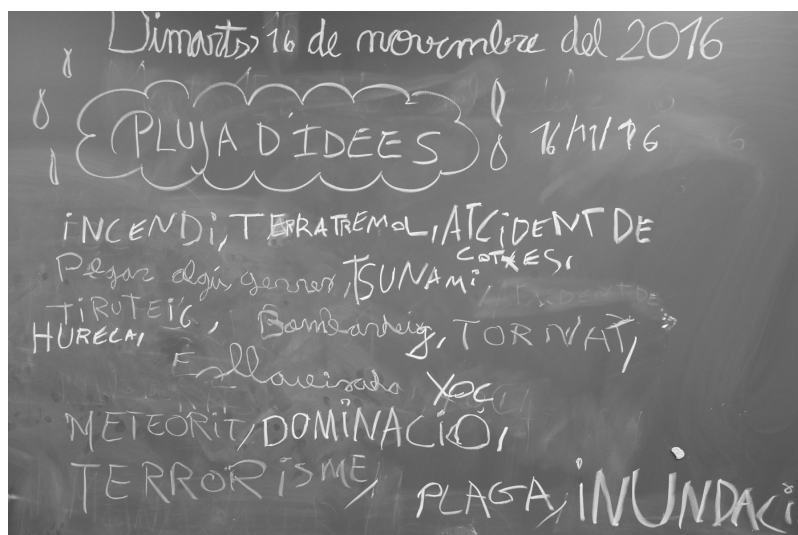 Dimarts, 16 de novembre del 2016
PLUJA D'IDEES 16/11/16
iNCENDi, TERRATREMOL, ATCiDENT DE
COTXES,
Pegar algú gerrer, TSUNAMi,
TiROTEiG,
HURECA, Bombardeig, TORNAT,
Esllaveissada XOC
METEÒRiT, DOMINACIÓ,
TERRORiSME, PLAGA, iNUNDACi